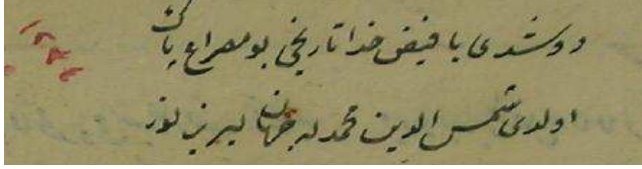 دوشدی با فیض خدا تاریخی بو مصراع پاك
اولدی شمس الدین محمدله جهان لبریز نور